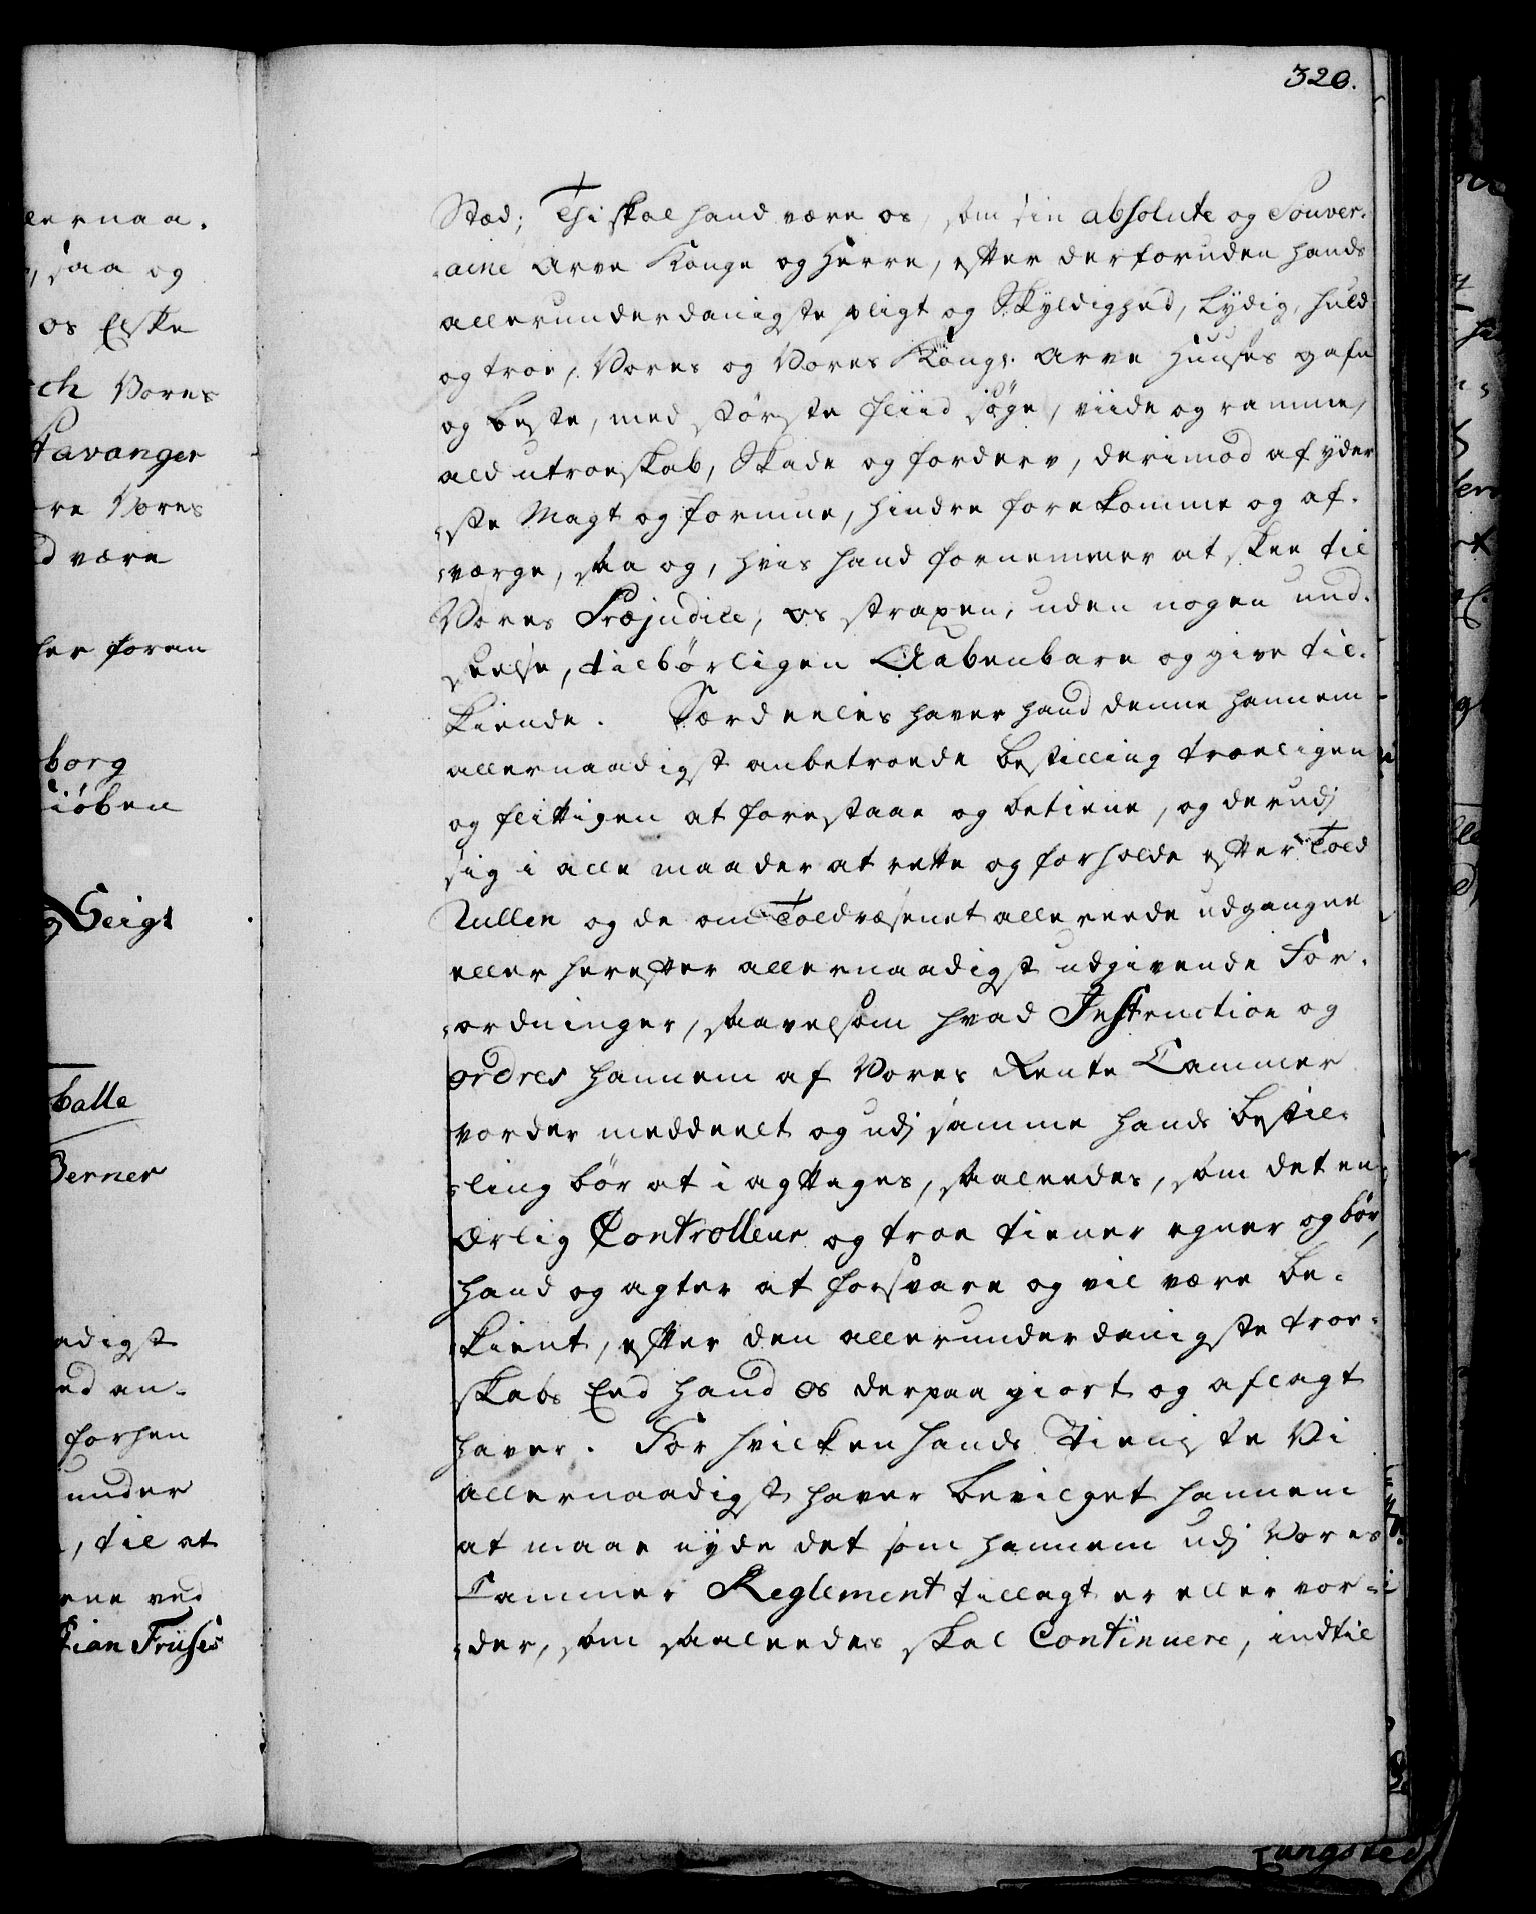 320.
Stæd; Thi skal hand være os, som sin absolute og Souver-
aine Arve Konge og Herre, efter derforuden hands
allerunderdanigste pligt og Skyldighed, lydig, huld
og troe, Vores og Vores Kongl. Arve Huuses gafn
og beste, med største fliid søge, viide og ramme,
ald utroeskab, Skade og forderv, derimod af yder
ste Magt og formue, hindre forekomme og af-
værge, saa og, hvis hand fornemmer at skee til
Vores Præjudice, os straxen, uden nogen und-
skelse, tilbørligen Aabenbare og give til-
kiende. Særdeeles haver hand denne hannem
allernaadigst anbetroede bestilling troeligen
og flittigen at forestaae og betiene, og derudj
sig i alle maader at rette og forholde efter Told
Rullen og de om Toldvæsenet allereede udgangne
eller herefter allernaadigst udgivende For-
ordninger, saavelsom hvad Instruction og
ordres hannem af Vores Rente Cammer
vorder meddeelt og udj samme hands bestil-
ling bør at i agttages, saaleedes, som det en
ærlig Controlleur og troe tiener egner og bør,
hand og agter at forsvare og vil være be-
kient, efter den allerunderdanigste troe-
skabs Eed hand os derpaa giort og aflagt
haver. For hvilken hands Tieniste Vi
allernaadigst haver bevilget hannem
at maae nyde det som hannem udj Vores
Cammer Reglement tillagt er eller vor-
der, som saaleedes skal Continuere, indtil
lernaa.
saa og
os Elske
ch Vores
Stavanger
re Vores
d være
her foren
borg
kiøben
Seigt
balle
Berner
adigst
ed an-
forhen
under
, til at
ene ved
stian Friises
Lungsted